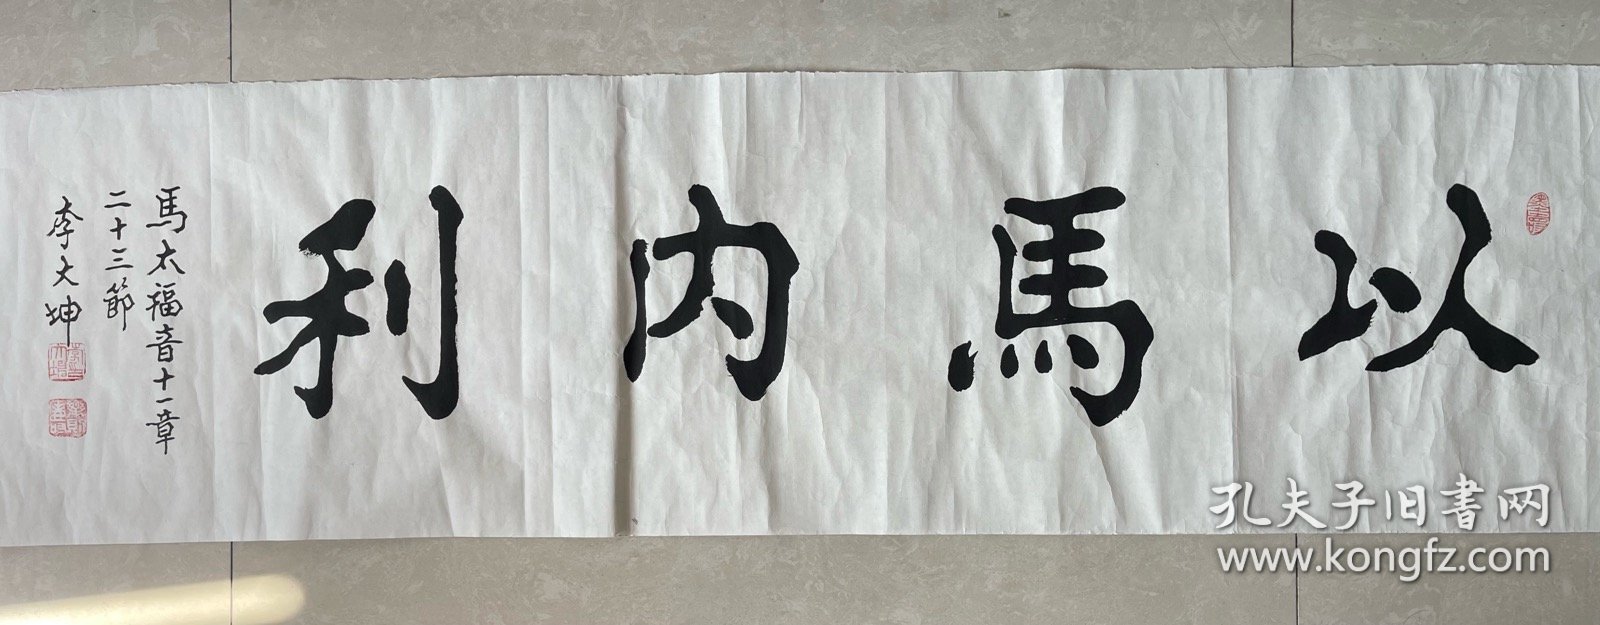 以馬内利
馬太福音十一章
二十三節
李大坤
孔夫子旧書网
www.kongfz.com